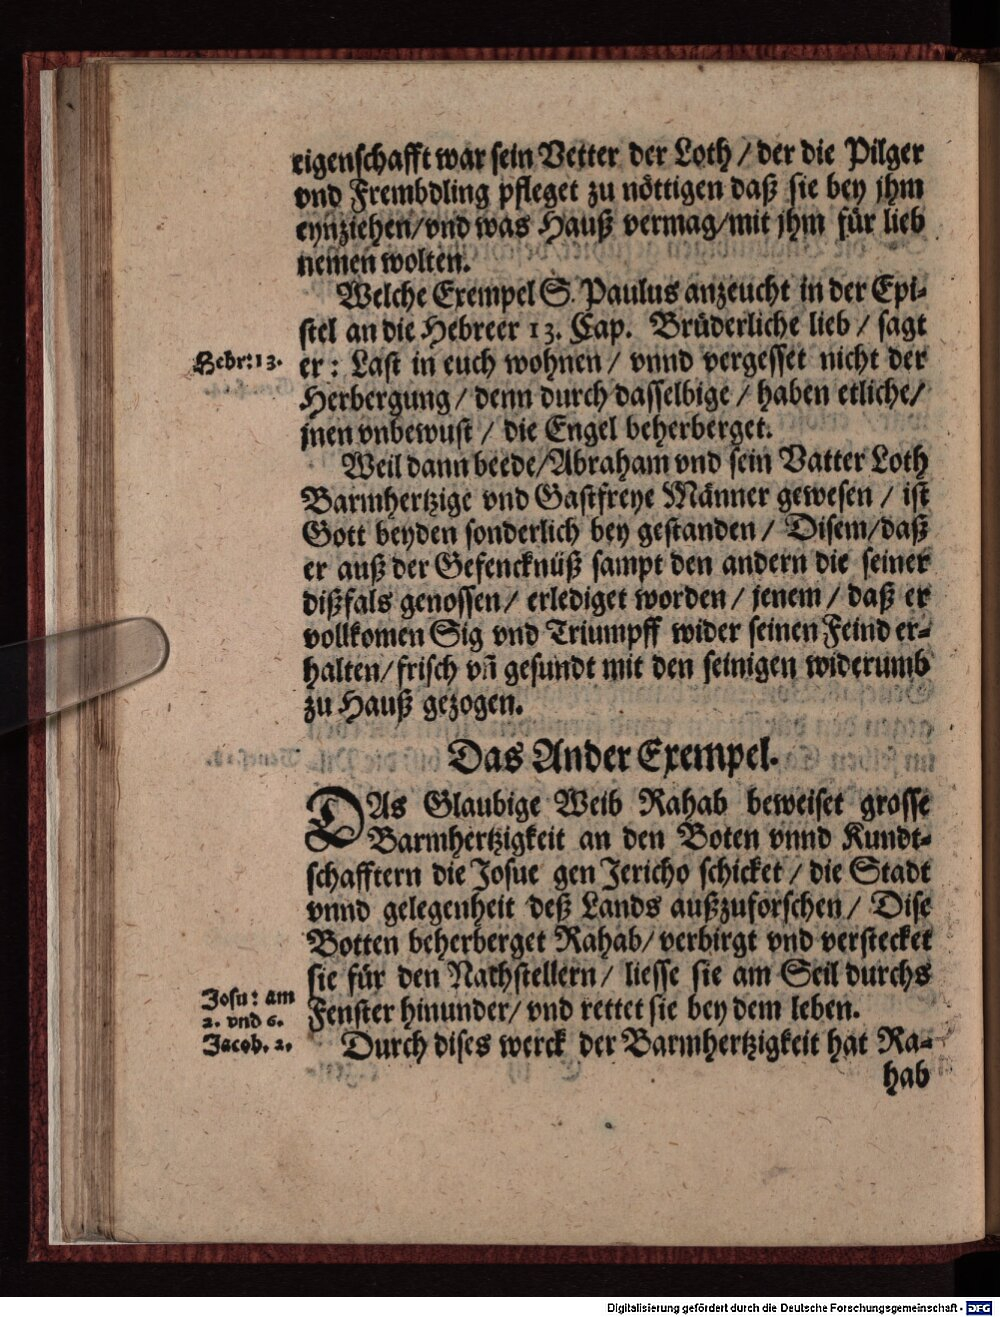 eigenschafft war sein Vetter der Loth / der die Pilger
vnd Frembdling pfleget zu nöttigen daß sie bey jhm
eynziehen/vnd was Hauß vermag/mit jhm für lieb
nemen wolten.
Welche Exempel S. Paulus anzeucht in der Epi-
stel an die Hebreer 13. Cap. Brüderliche lieb / sagt
Hebr: 13.
er : Last in euch wohnen / vnnd vergesset nicht der
Herbergung / denn durch dasselbige / haben etliche/
jnen vnbewust / die Engel beherberget.
Weil dann beede/Abraham vnd sein Vatter Loth
Barmhertzige vnd Gastfreye Männer gewesen / ist
Gott beyden sonderlich bey gestanden / Disem/daß
er auß der Gefencknüß sampt den andern die seiner
dißfals genossen/ erlediget worden / jenem / daß er
vollkomen Sig vnd Triumpff wider seinen Feind er-
halten/frisch vñ gesundt mit den seinigen widerumb
zu Hauß gezogen.
Das Ander Exempel.
DAs Glaubige Weib Rahab beweiset grosse
Barmhertzigkeit an den Boten vnnd Kundt-
schafftern die Josue gen Jericho schicket / die Stadt
vnnd gelegenheit deß Lands außzuforschen/ Dise
Botten beherberget Rahab/ verbirgt vnd verstecket
sie für den Nathstellern/ liesse sie am Seil durchs
Fenster hinunder/ vnd rettet sie bey dem leben.
Josu: am
2. vnd 6.
Jacob. 2.
Durch dises werck der Barmhertzigkeit hat Ra-
hab
Digitalisierung gefördert durch die Deutsche Forschungsgemeinschaft - DFG